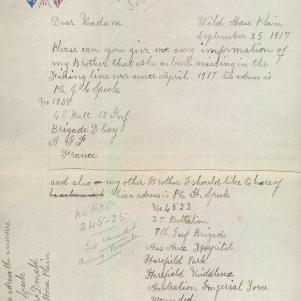 Dear Madam
Wild Horse Plain
September 25 1917
Please can you give me any information of
my Brother that as been missing in the
Fireing line ever since April 1917 his adress is
Pte. J. Speck
No 1937
48 Batt. 12 Inf
Brigade D Coy
A I F
France
and also my other Brother I should like to here of
his adress is Pte H. Speck
No 4523
27 Battalion
7th Inf Brigade
Aus Aux Hospital
Harefield Park
Harefield Middlesex
Australian Imperial Force
Wounded
245-25
adress the answere
Speck
Donalds
Horse Plain